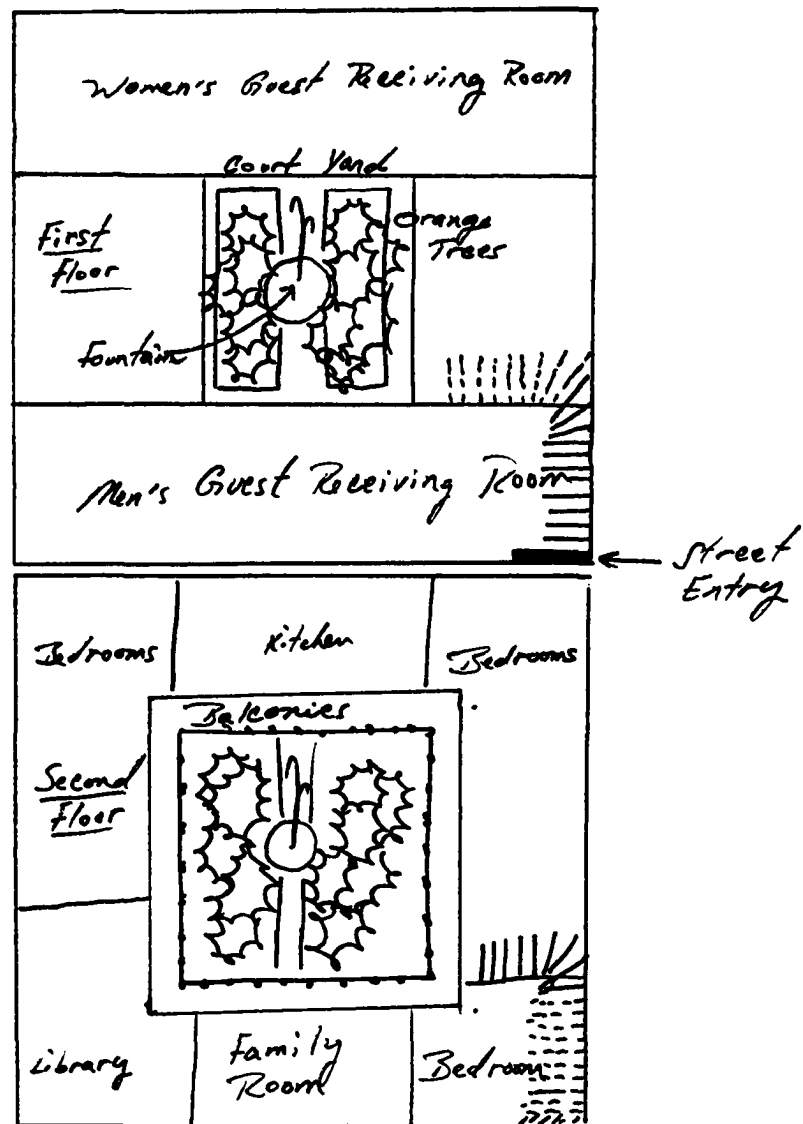 Women's Guest Receiving Room
Court Yard
Orange
Trees
First
Floor
Fountain
Men's Guest Receiving Room
Street
Entry
Bedrooms
Kitchen
Bedrooms
Balconies
Second
Floor
Library
Family
Room
Bedroom